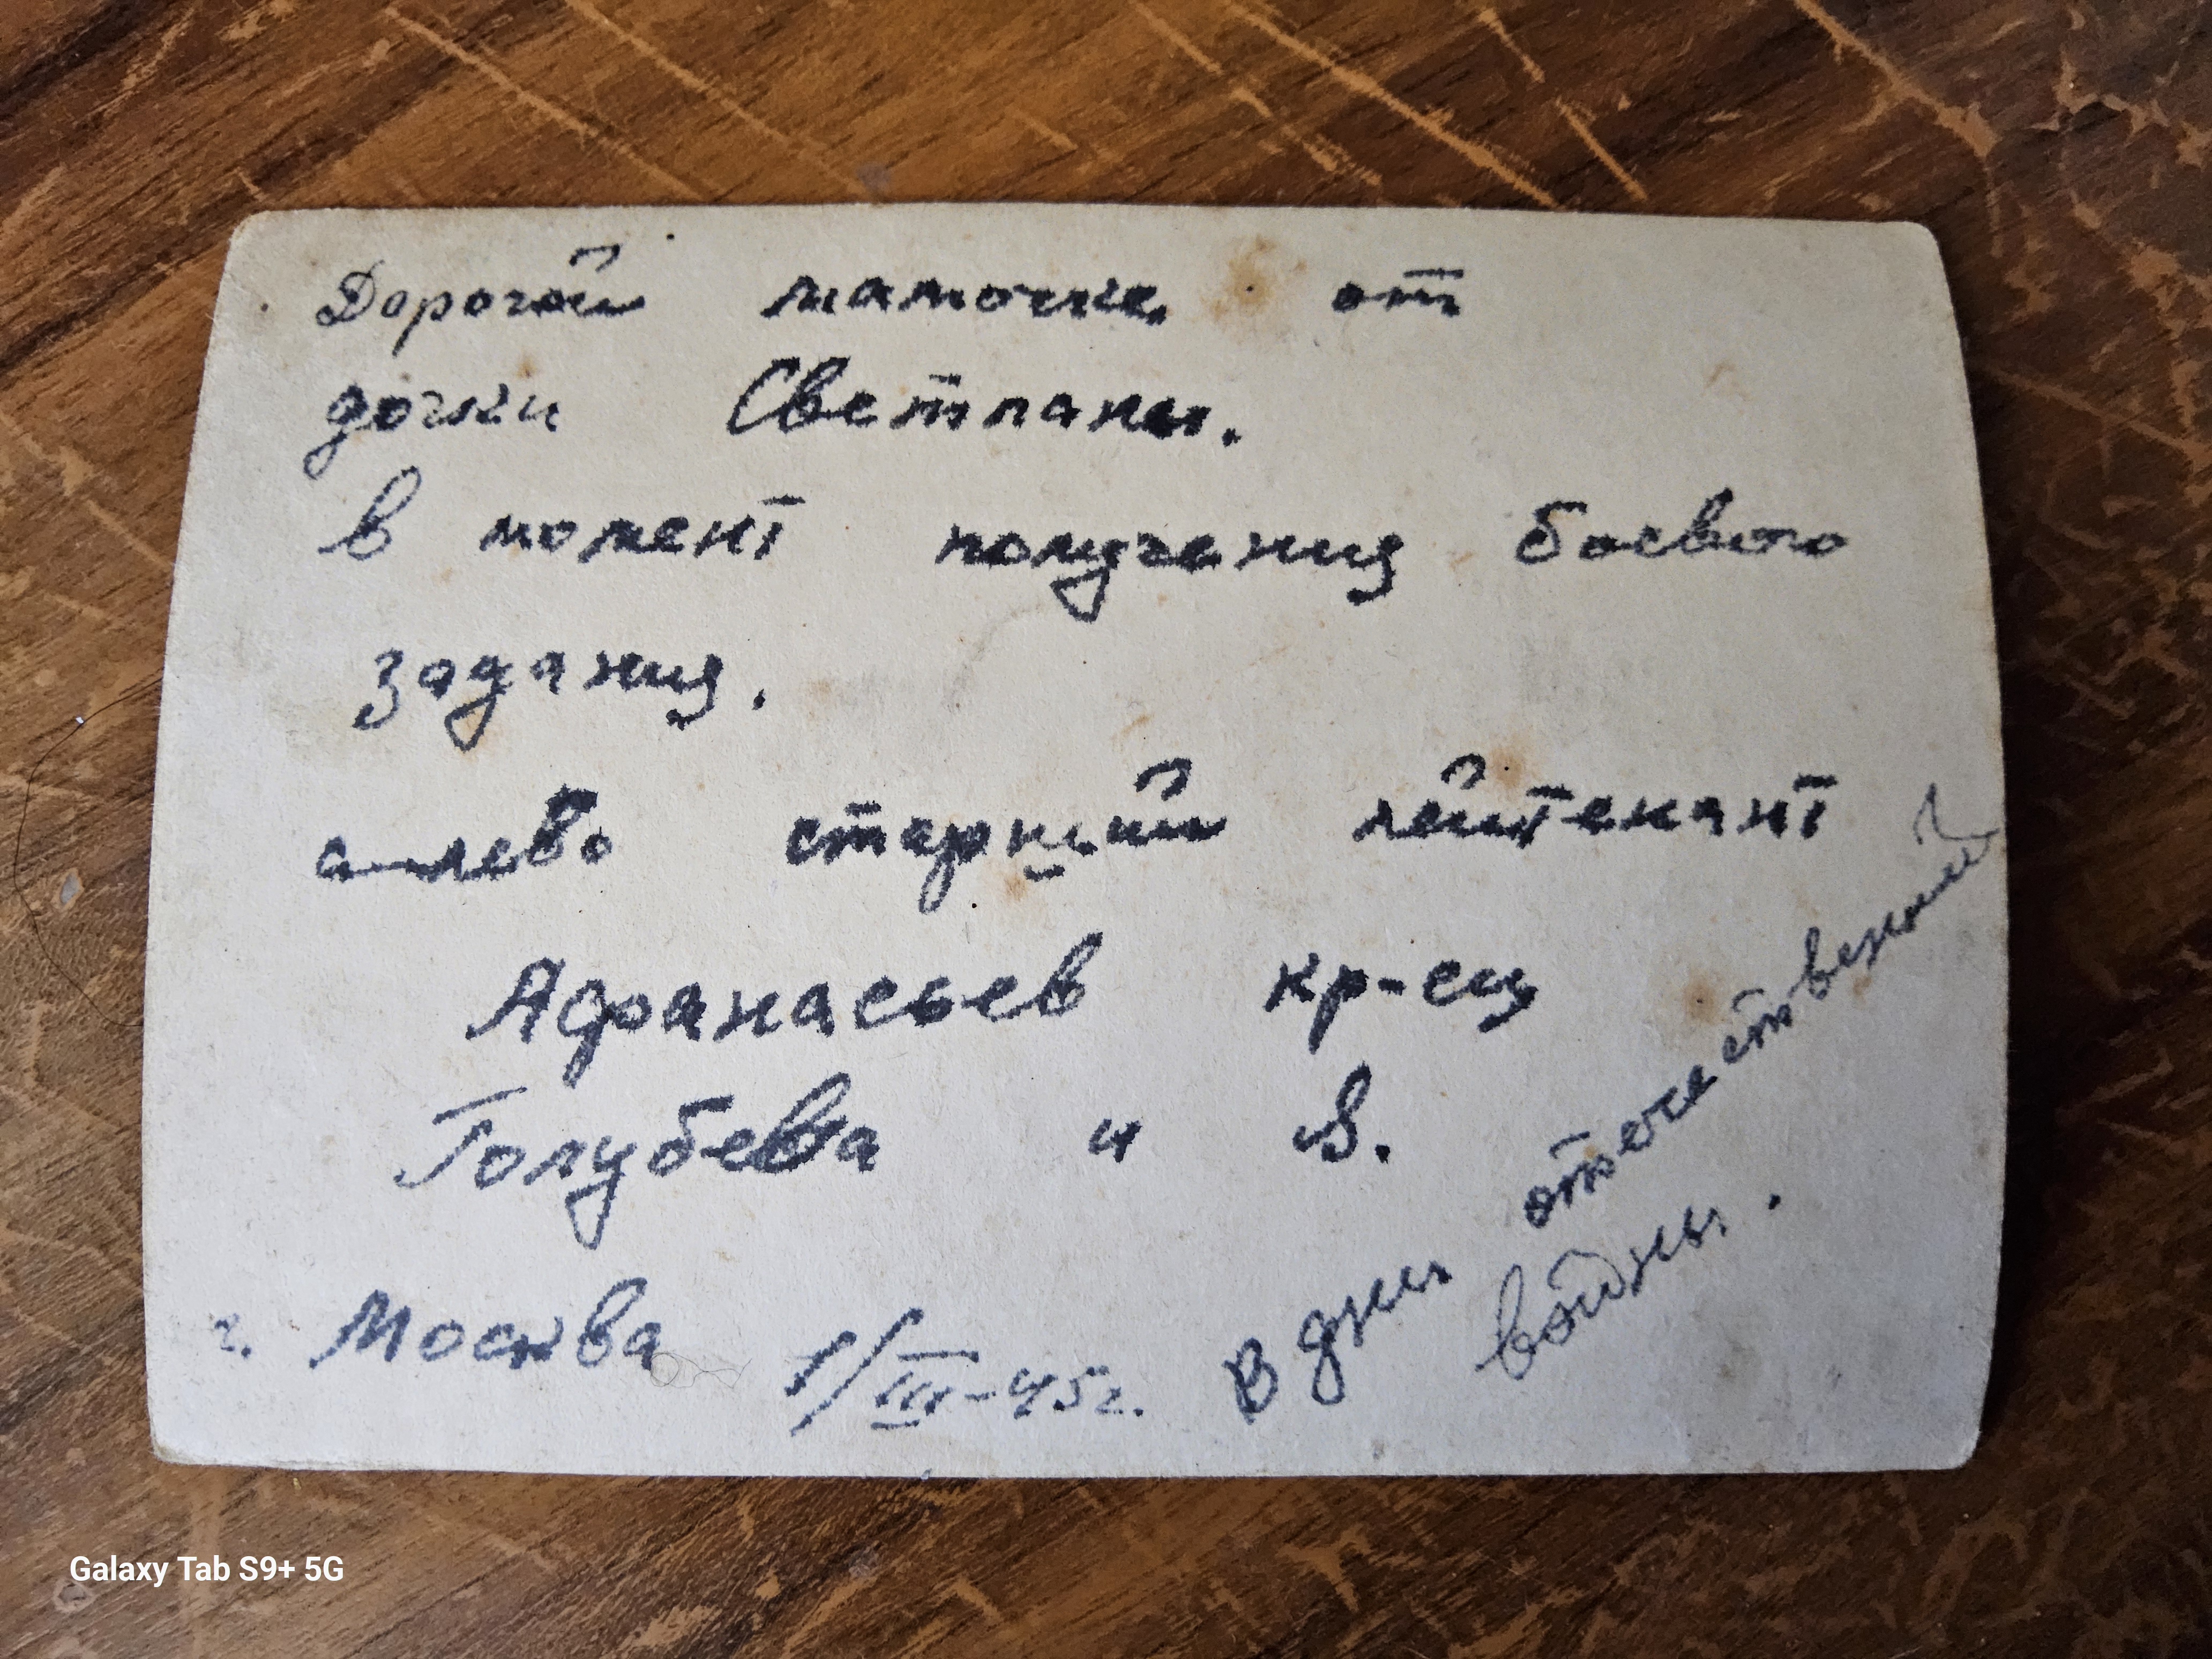 Дорогой мамочке от
дочки Светланы.
В момент получения боевого
задания.
с-лево старший лейтенант
Афанасьев кр-ец
Голубева и
г. Москва 1/III-45г.
В дни отечественной
войны.
Galaxy Tab S9+ 5G